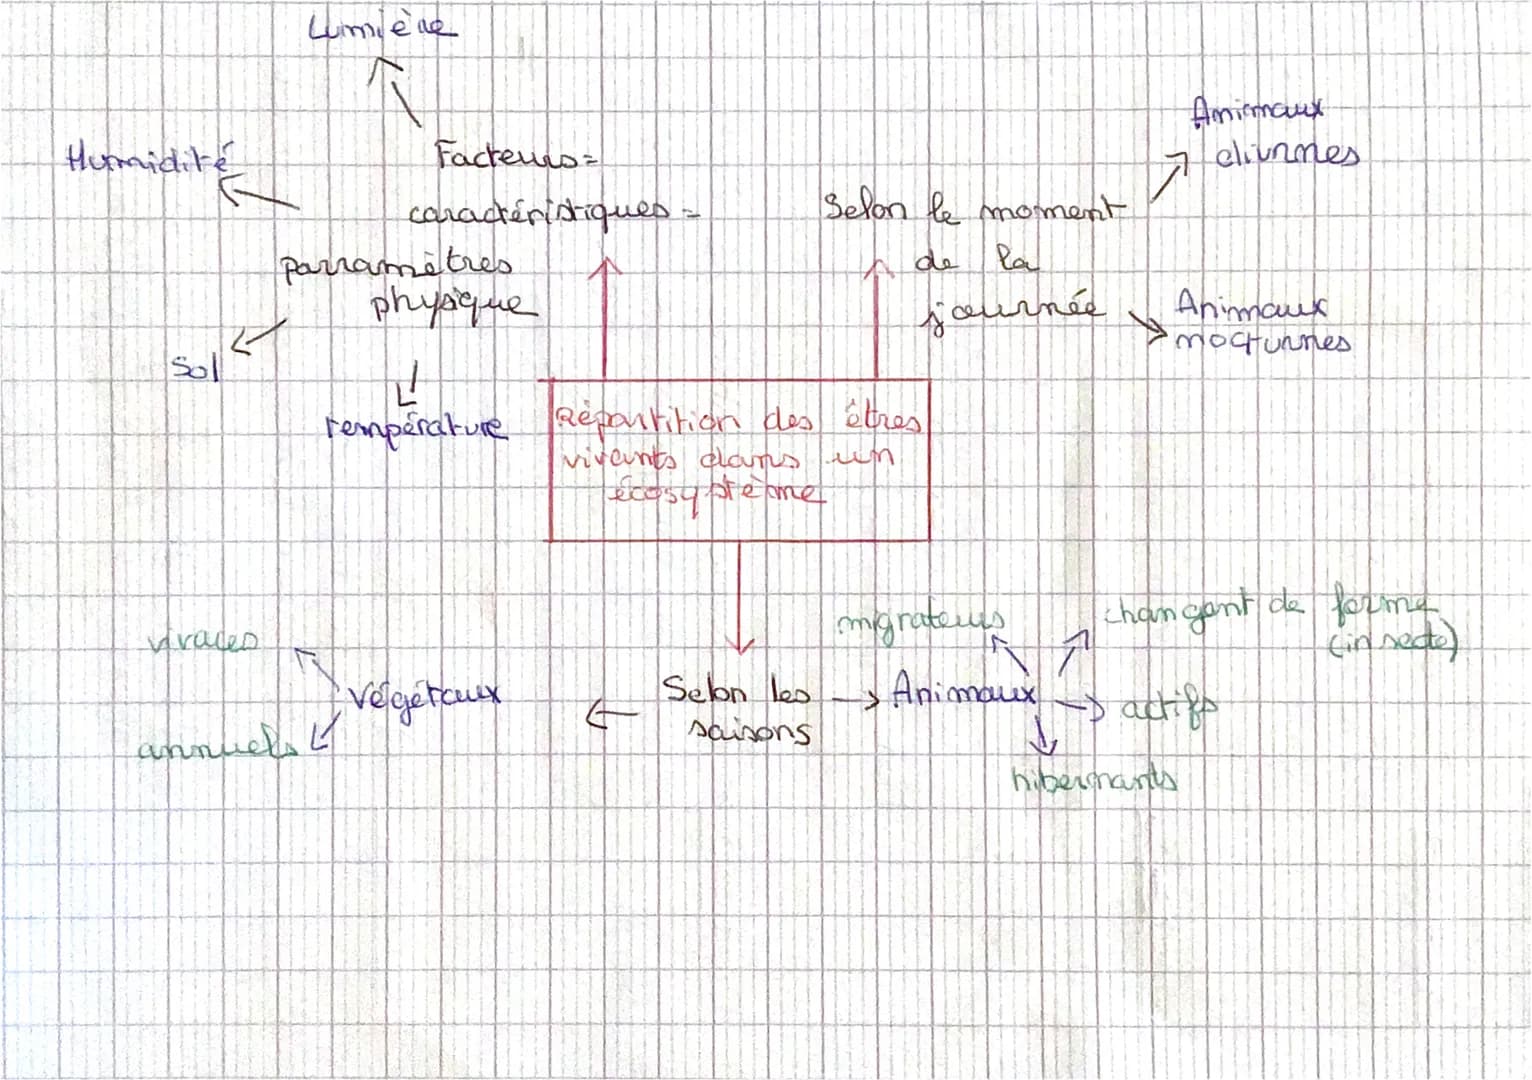 Lumière
Humidité
Facteurs =
caractéristiques =
parramètres
physique
Sol
température
Selon le moment
de la
journée
Animaux
diurnes
Animaux
nocturnes
Répartition des êtres
vivants dans un
écosystème
Selon les
saisons
végétaux
vivaces
annuels
Animaux
migrateurs
changent de forme
(insecte)
actifs
hibernants